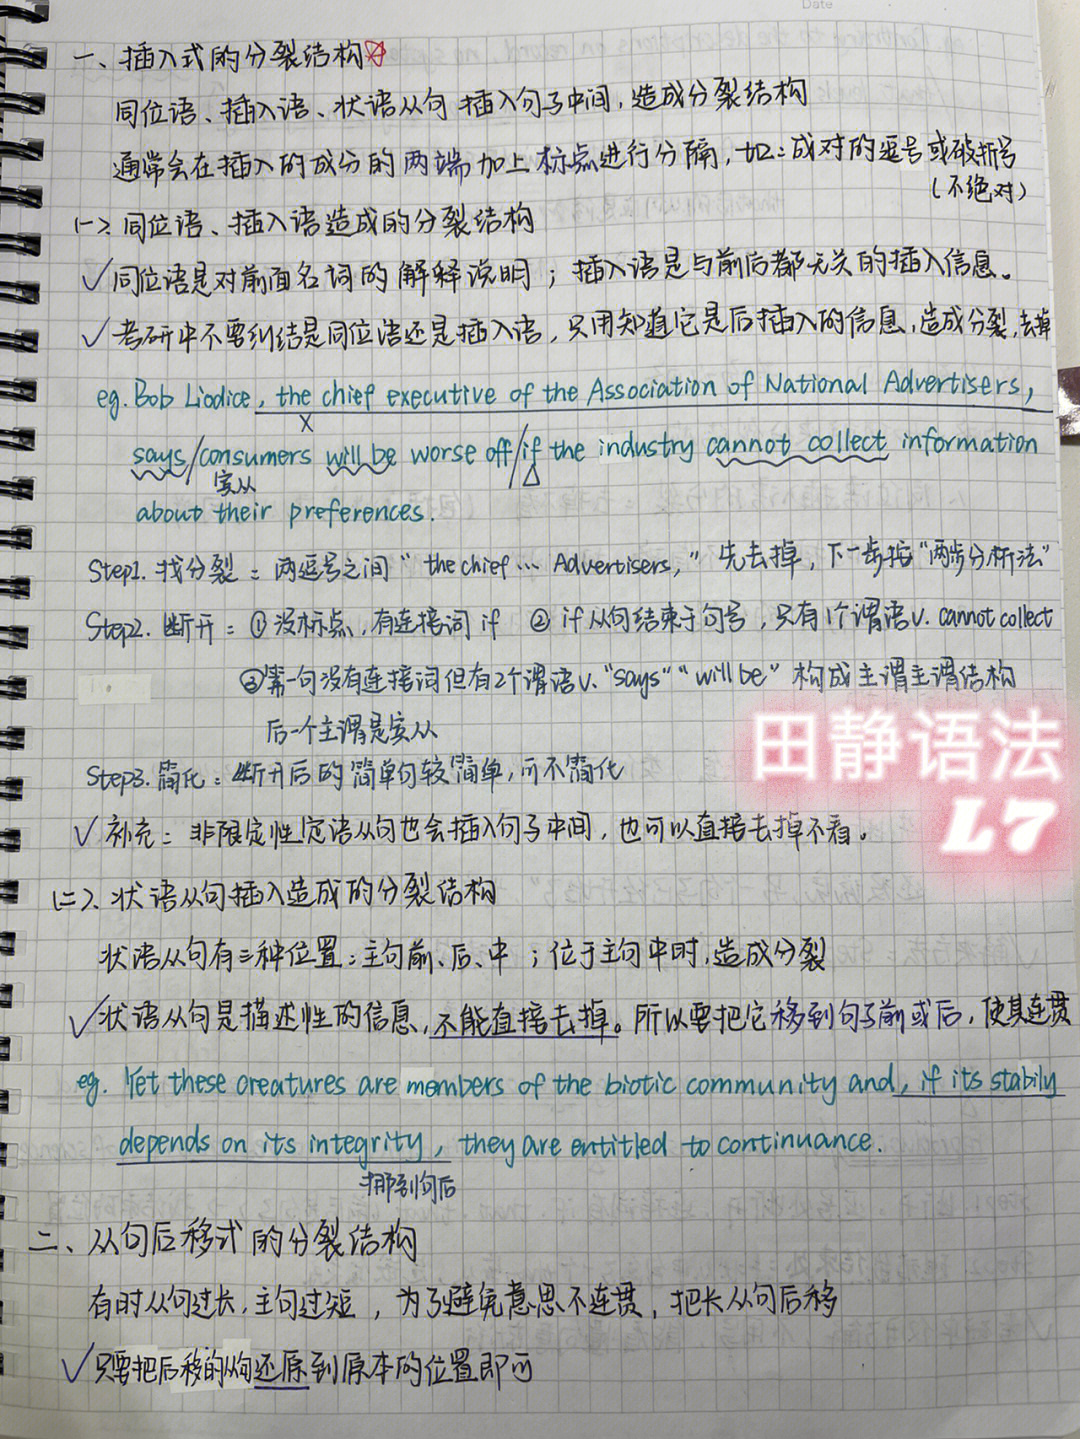 Date
一、插入式的分裂结构
同位语、插入语、状语从句 插入句子中间，造成分裂结构
通常会在插入的成分的两端加上标点进行分隔，如：成对的逗号或破折号
（不绝对）
(一)、同位语、插入语造成的分裂结构
✓同位语是对前面名词的解释说明；插入语是与前后都无关的插入信息。
✓考研中不要纠结是同位语还是插入语，只用知道它是后插入的信息，造成分裂，去掉
eg. Bob Liodice, the chief executive of the Association of National Advertisers,
says/consumers will be worse off/if the industry cannot collect information
宾从
about their preferences.
Step1. 找分裂：两逗号之间“the chief … Advertisers,”先去掉，下一步按“两步分析法”
Step2. 断开：①没标点，有连接词 if ②if从句结束于句号，只有1个谓语v. cannot collect
③第一句没有连接词但有2个谓语v.“says”“will be”构成主谓主谓结构
后一个主谓是宾从
Step3. 简化：断开后的简单句较简单，可不简化
田静语法
L7
✓补充：非限定性定语从句也会插入句子中间，也可以直接去掉不看。
(二)、状语从句插入造成的分裂结构
状语从句有三种位置：主句前、后、中；位于主句中时，造成分裂
✓状语从句是描述性的信息，不能直接去掉。所以要把它移到句子前或后，使其连贯
eg. Yet these creatures are members of the biotic community and, if its stabily
depends on its integrity, they are entitled to continuance.
挪到句后
二、从句后移式的分裂结构
有时从句过长，主句过短，为了避免意思不连贯，把长从句后移
✓只要把后移的从句还原到原本的位置即可